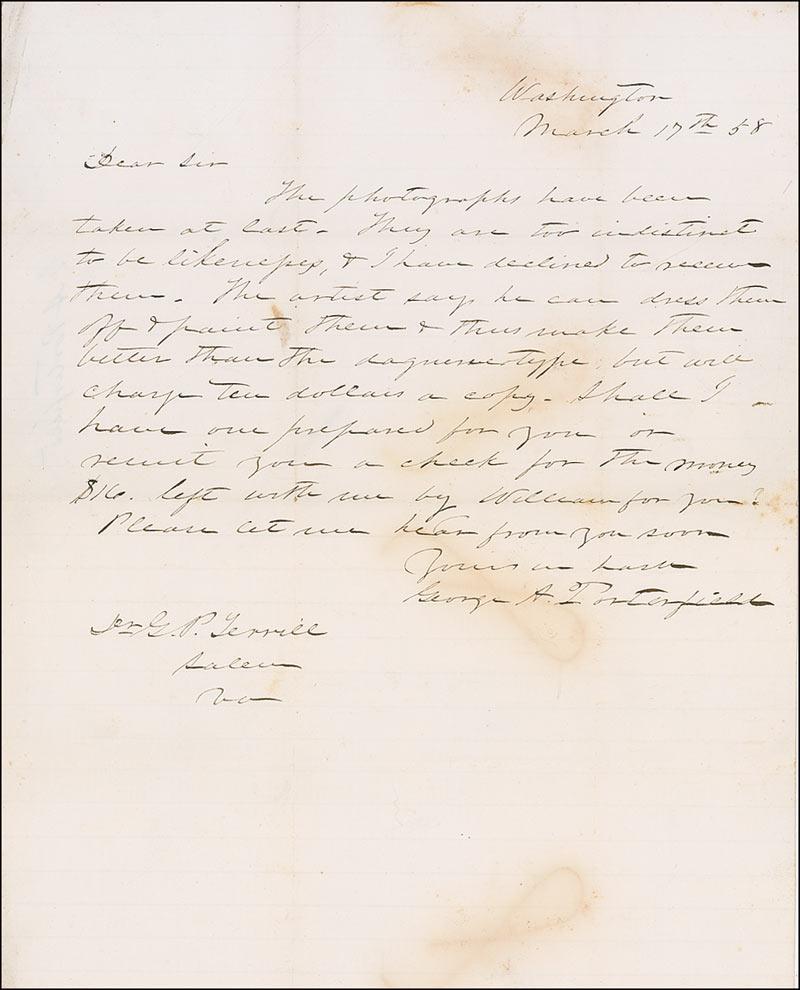 Washington
March 17th 58
Dear Sir
The photographs have been
taken at last. They are too indistinct
to be likenesses, & I have declined to receive
them. The artist says he can dress them
off & paint them & thus make them
better than the daguerreotype, but will
charge ten dollars a copy. Shall I
have one prepared for you or
remit you a check for the money
$16. left with me by William for you?
Please let me hear from you soon
Yours in haste
George A. Porterfield
Dr G. P. Terrill
Salem
Va